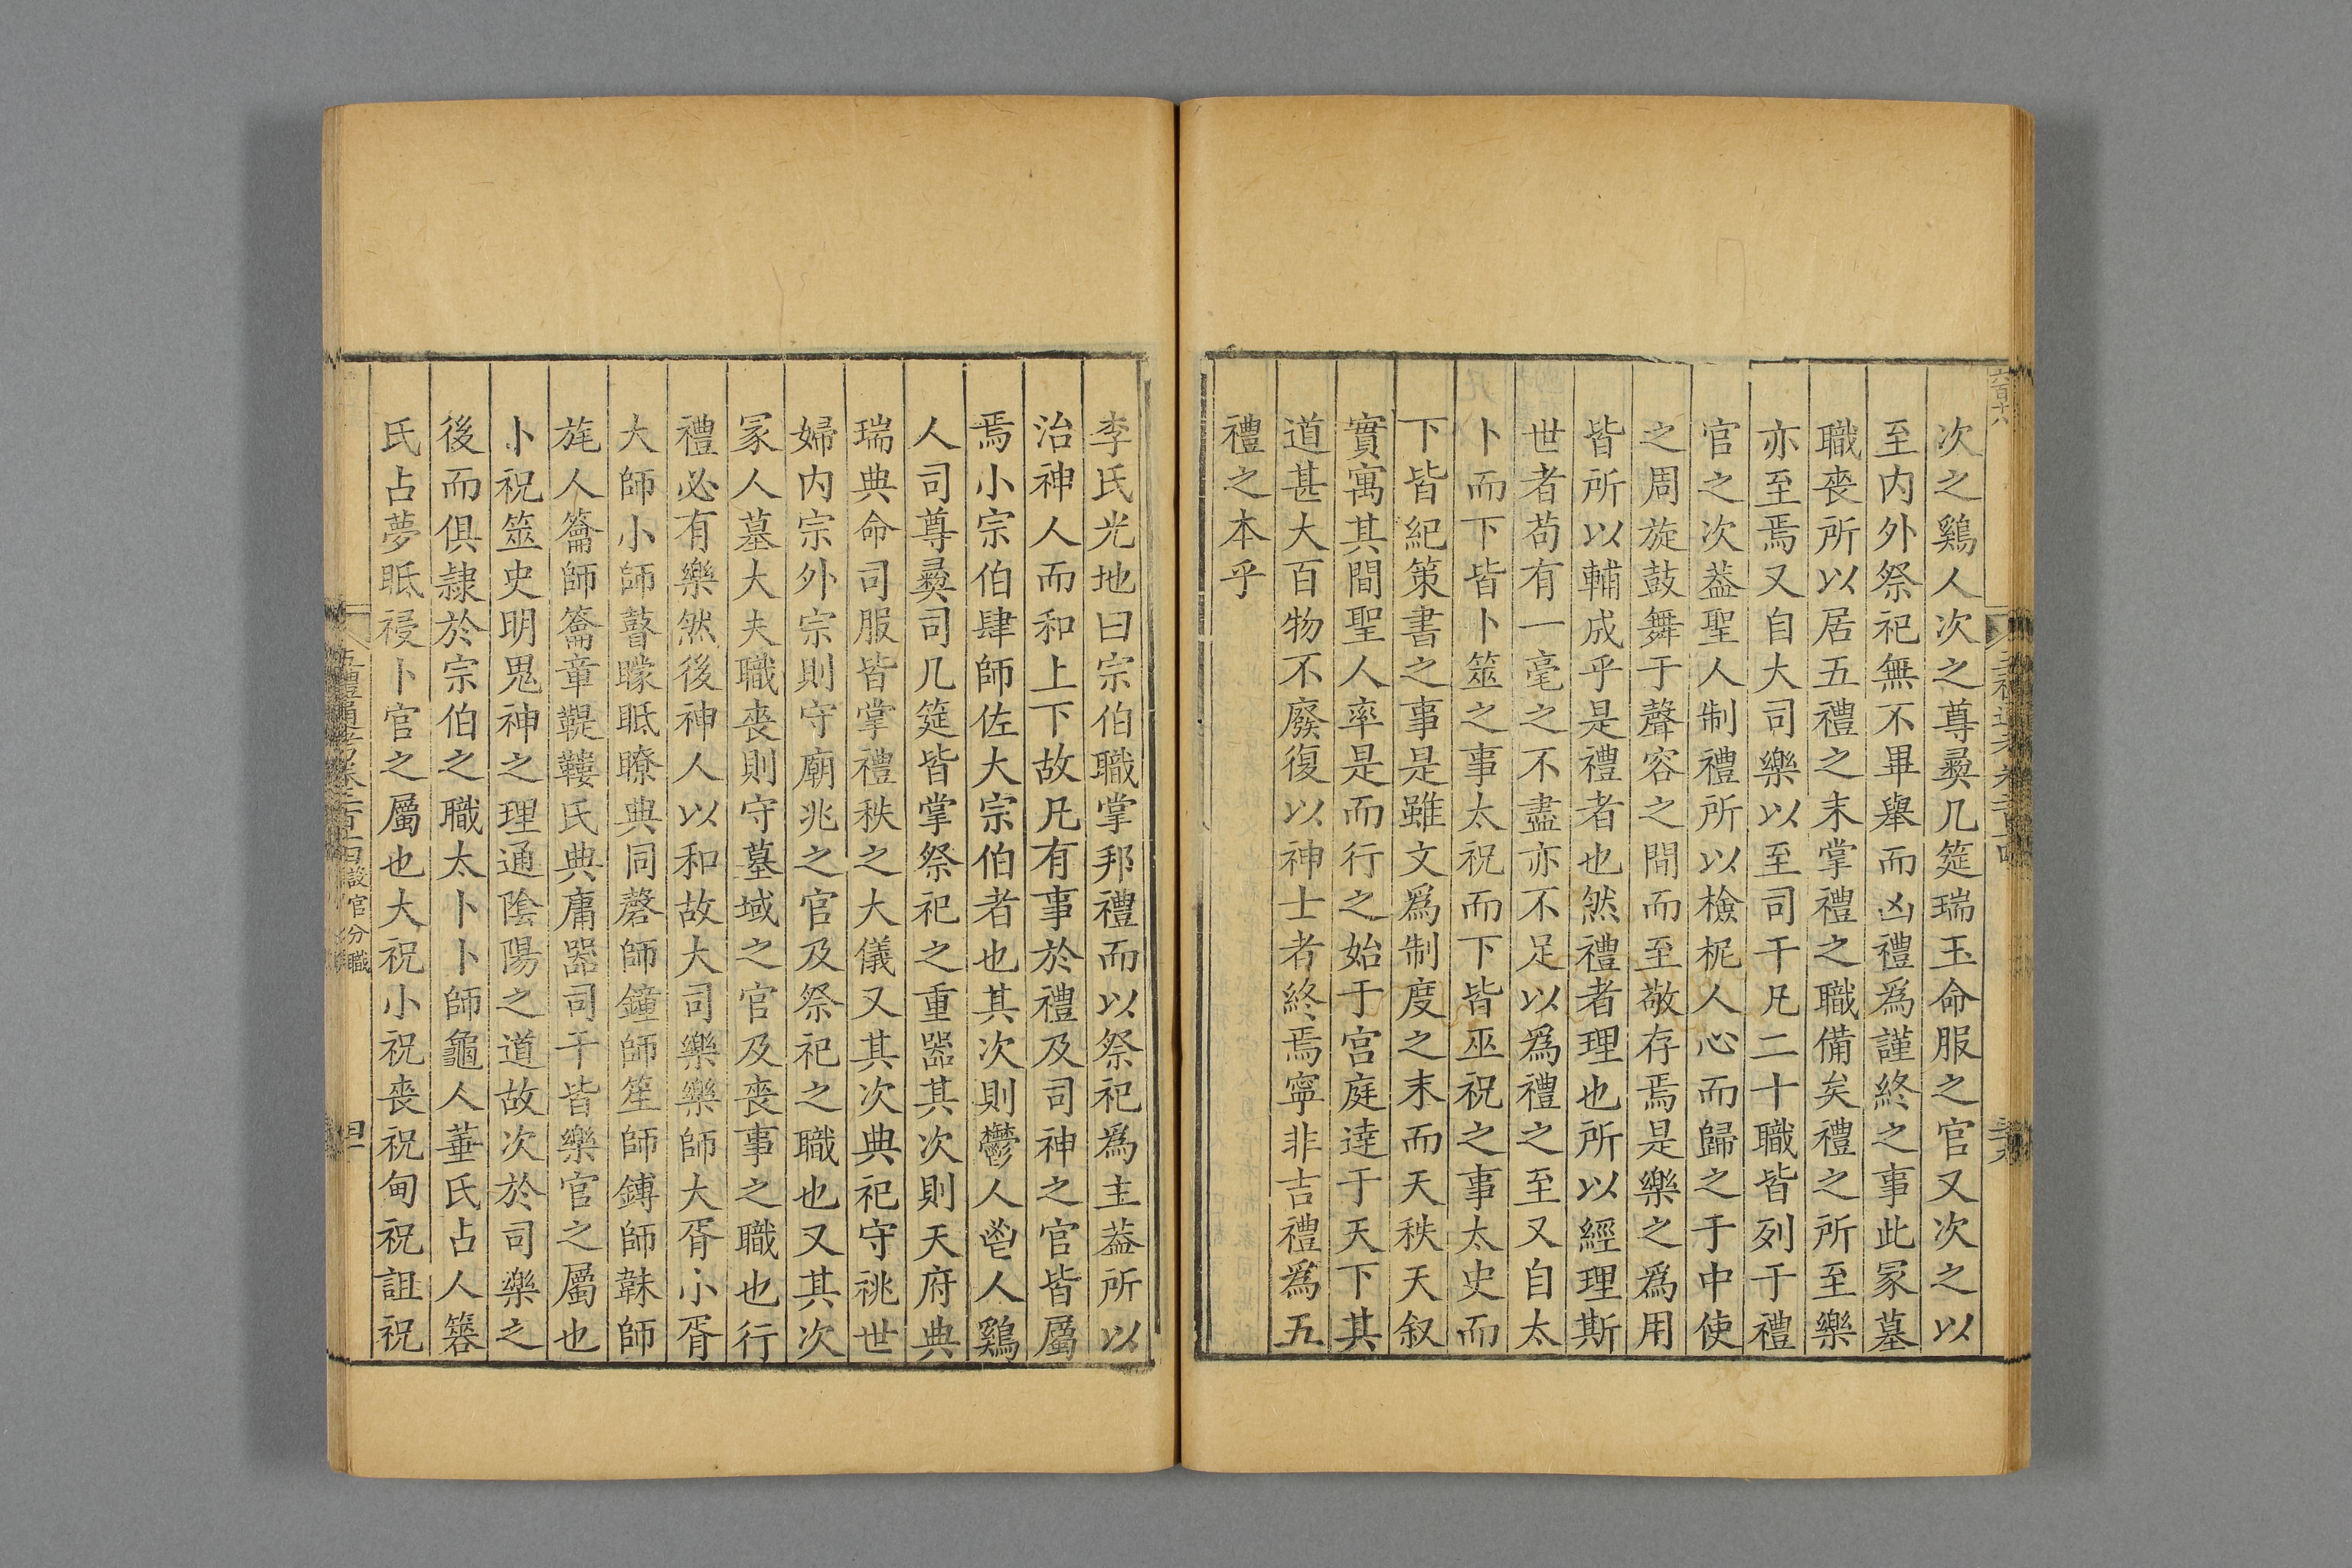 六百十八
次之鷄人次之尊彛几筵瑞玉命服之官又次之以
至内外祭祀無不畢舉而凶禮爲謹終之事此冢墓
職喪所以居五禮之末掌禮之職備矣禮之所至樂
亦至焉又自大司樂以至司干凡二十職皆列于禮
官之次葢聖人制禮所以檢柅人心而歸之于中使
之周旋鼓舞于聲容之間而至敬存焉是樂之爲用
皆所以輔成乎是禮者也然禮者理也所以經理斯
世者苟有一毫之不盡亦不足以爲禮之至又自太
卜而下皆卜筮之事太祝而下皆巫祝之事太史而
下皆紀策書之事是雖文爲制度之末而天秩天叙
實寓其間聖人率是而行之始于宫庭逹于天下其
道甚大百物不廢復以神士者終焉寧非吉禮爲五
禮之本乎
李氏光地曰宗伯職掌邦禮而以祭祀爲主葢所以
治神人而和上下故凡有事於禮及司神之官皆屬
焉小宗伯肆師佐大宗伯者也其次則鬱人鬯人鷄
人司尊彛司几筵皆掌祭祀之重器其次則天府典
瑞典命司服皆掌禮秩之大儀又其次典祀守祧世
婦内宗外宗則守廟兆之官及祭祀之職也又其次
冢人墓大夫職喪則守墓域之官及喪事之職也行
禮必有樂然後神人以和故大司樂樂師大胥小胥
大師小師瞽矇眡瞭典同磬師鐘師笙師鎛師韎師
旄人籥師籥章鞮鞻氏典庸器司干皆樂官之屬也
卜祝筮史明鬼神之理通隂陽之道故次於司樂之
後而俱隷於宗伯之職太卜卜師龜人菙氏占人簭
氏占夢眡祲卜官之屬也大祝小祝喪祝甸祝詛祝
五禮通考卷二百十四設官分職
四